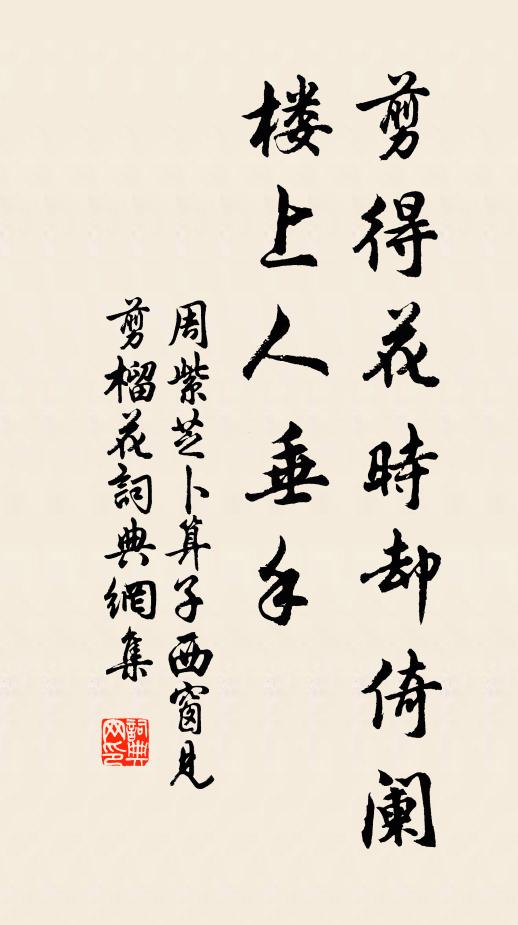 剪得花時却倚阑
楼上人垂手
周紫芝卜算子西窗見
剪榴花詞典網集
詞典网印